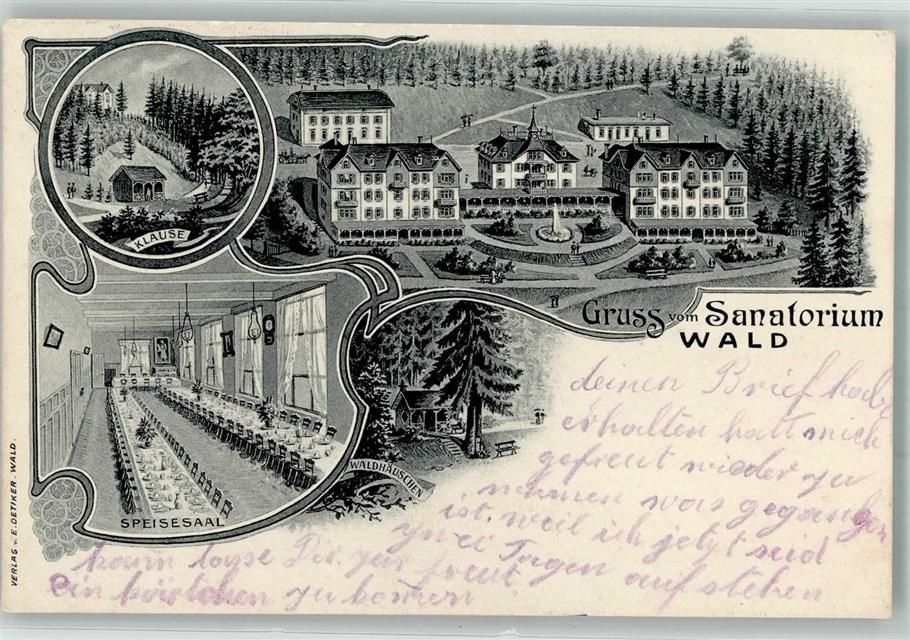 KLAUSE
Gruss vom Sanatorium
WALD
SPEISESAAL
WALDHÄUSCHEN
VERLAG v. E. OETIKER. WALD.
deinen Brief habe
erhalten hatt mich
gefreut wieder zu
nehmen was gegangen
ist, weil ich jetzt seid
zwei Tagen aufstehen
kann Dir zur freut
ein zu